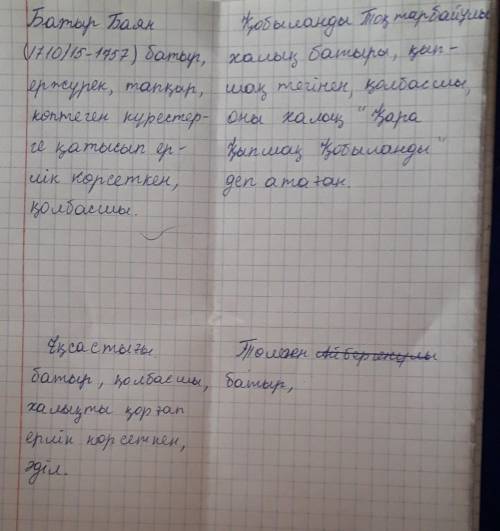 Батыр Баян
(1710/15-1757) батыр,
ержүрек, тапқыр,
көптеген күрестер-
ге қатысып ер-
лік көрсеткен,
қолбасшы.
Қобыланды Тоқтарбайұлы
халық батыры, қып-
шақ тегінен, қолбасшы,
оны халық "Қара
Қыпшақ Қобыланды"
деп атаған.
Ұқсастығы
батыр, қолбасшы,
халықты қорғап
ерлік көрсеткен,
әділ.
батыр,